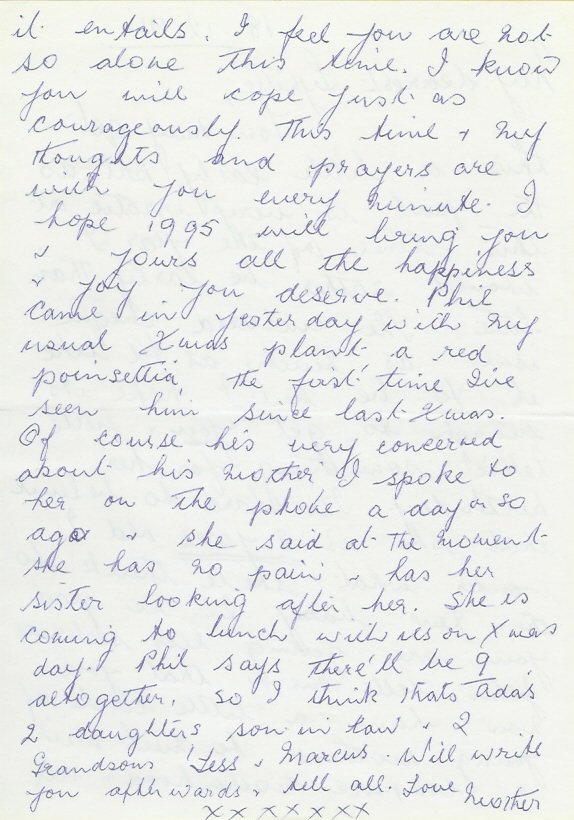 it entails. I feel you are not
so alone this time. I know
you will cope just as
courageously this time + my
thoughts and prayers are
with you every minute. I
hope 1995 will bring you
+ yours all the happiness
+ joy you deserve. Phil
came in yesterday with my
usual Xmas plant a red
poinsettia, the first time I've
seen him since last Xmas.
Of course he's very concerned
about his mother I spoke to
her on the phone a day or so
ago + she said at the moment
she has no pain + has her
sister looking after her. She is
coming to lunch with us on Xmas
day. Phil says there'll be 9
altogether, so I think thats Ada's
2 daughters son-in law + 2
Grandsons Less + Marcus. Will write
you afterwards + tell all. Love Mother
xx xx x xx